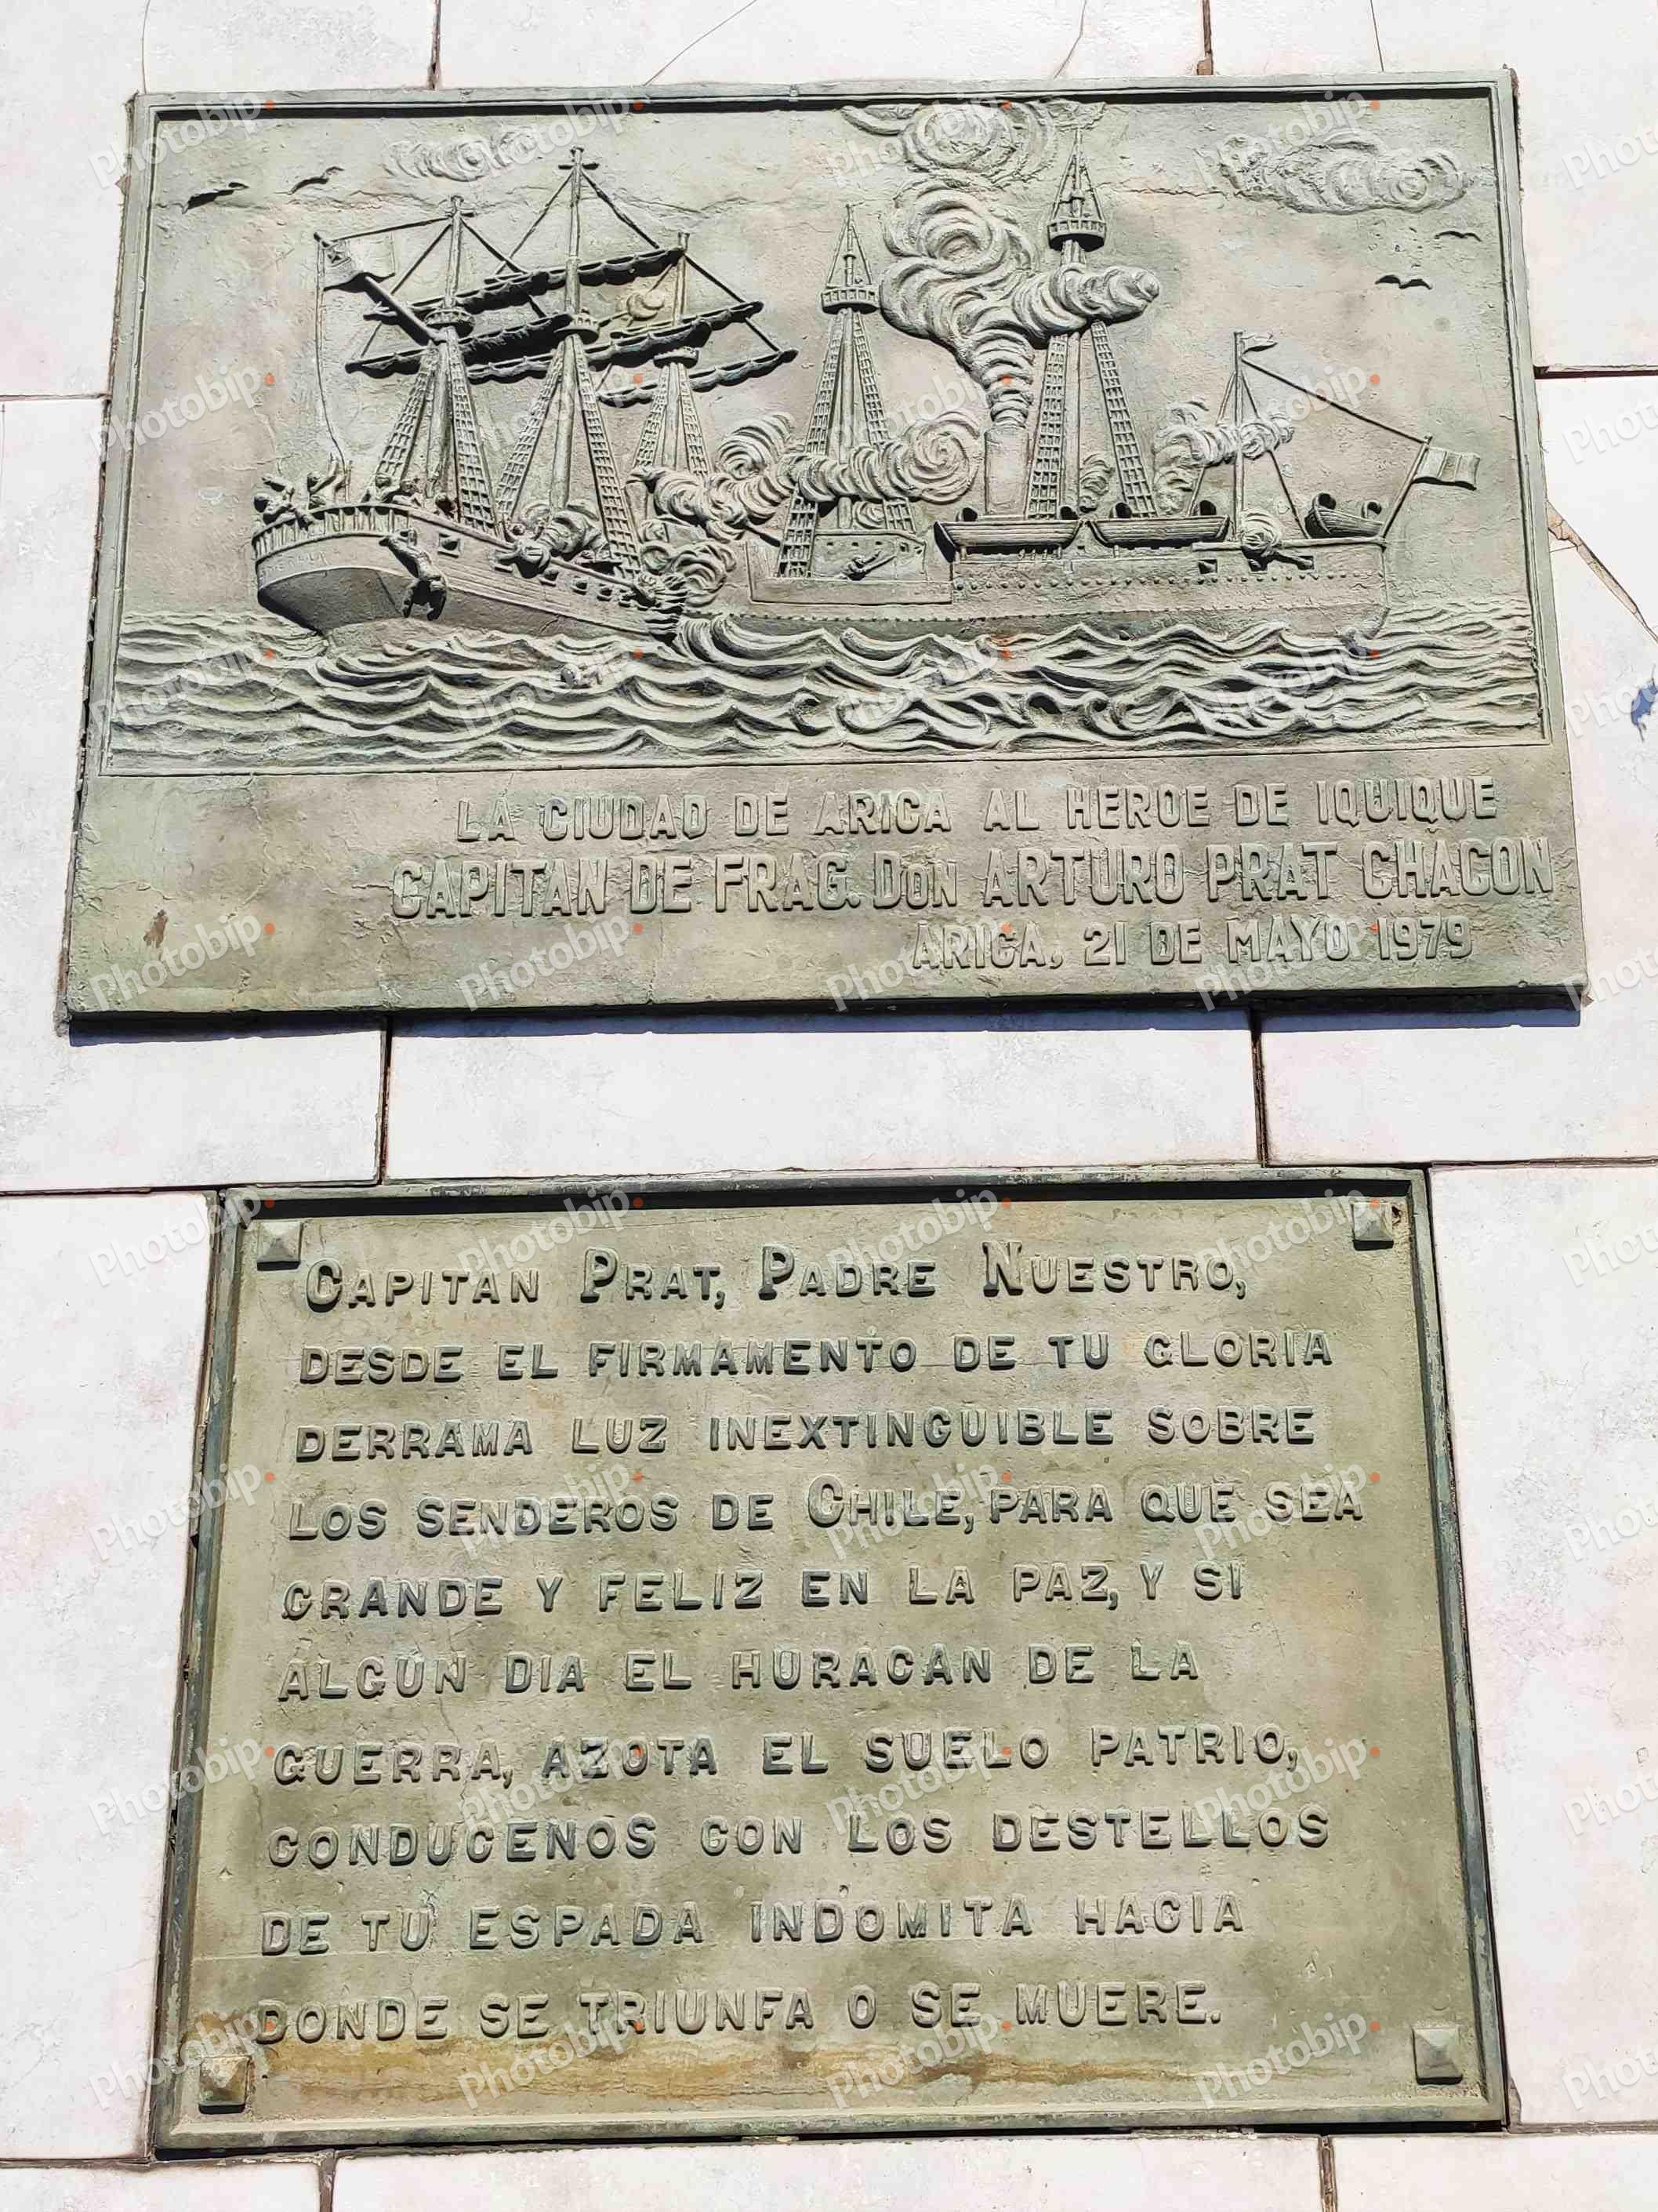 LA CIUDAD DE ARICA AL HEROE DE IQUIQUE
CAPITAN DE FRAG. DON ARTURO PRAT CHACON
ARICA, 21 DE MAYO 1979
CAPITAN PRAT, PADRE NUESTRO,
DESDE EL FIRMAMENTO DE TU GLORIA
DERRAMA LUZ INEXTINGUIBLE SOBRE
LOS SENDEROS DE CHILE, PARA QUE SEA
GRANDE Y FELIZ EN LA PAZ, Y SI
ALGÚN DIA EL HURACAN DE LA
GUERRA, AZOTA EL SUELO PATRIO,
CONDUCENOS CON LOS DESTELLOS
DE TU ESPADA INDOMITA HACIA
DONDE SE TRIUNFA O SE MUERE.
Photobip.